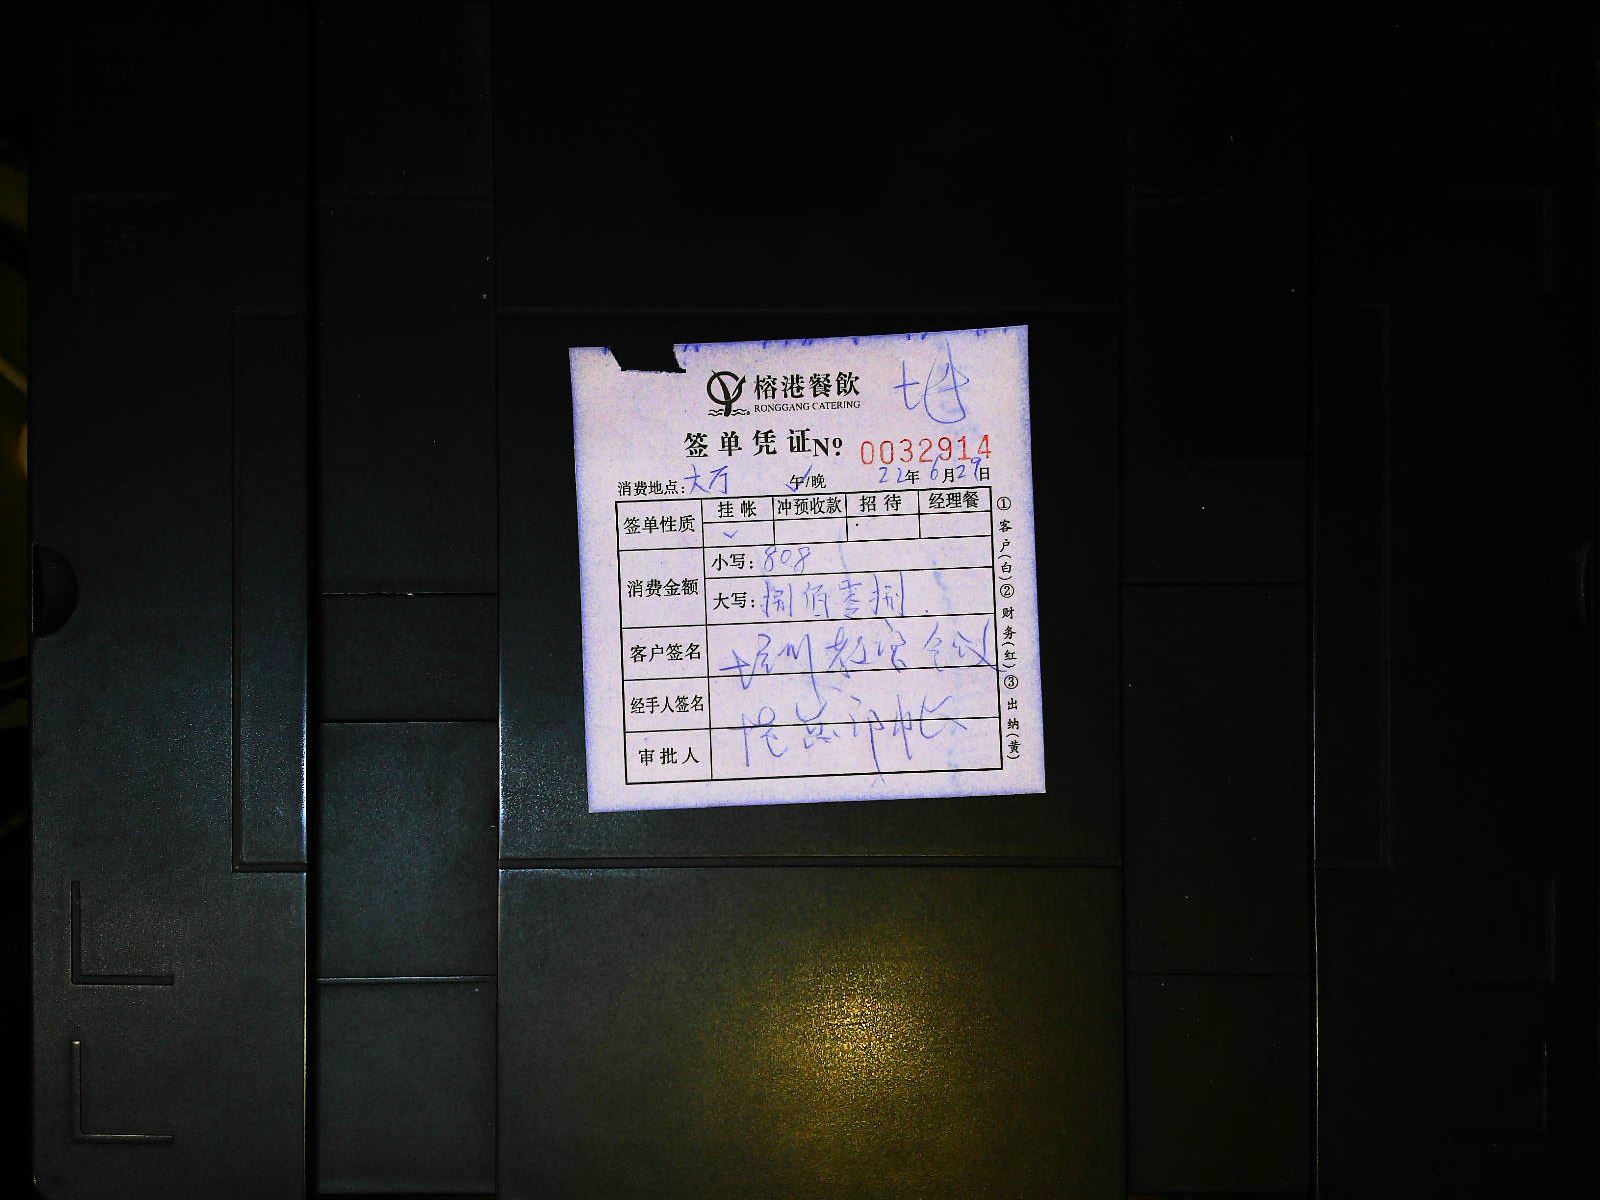 榕港餐飲
RONGGANG CATERING
签单凭证 Nº 0032914
消费地点:大厅 午/晚 22年6月29日
签单性质 挂帐 冲预收款 招待 经理餐
消费金额 小写:808
大写:捌佰零捌
客户签名
经手人签名
审批人
①客户(白)②财务(红)③出纳(黄)